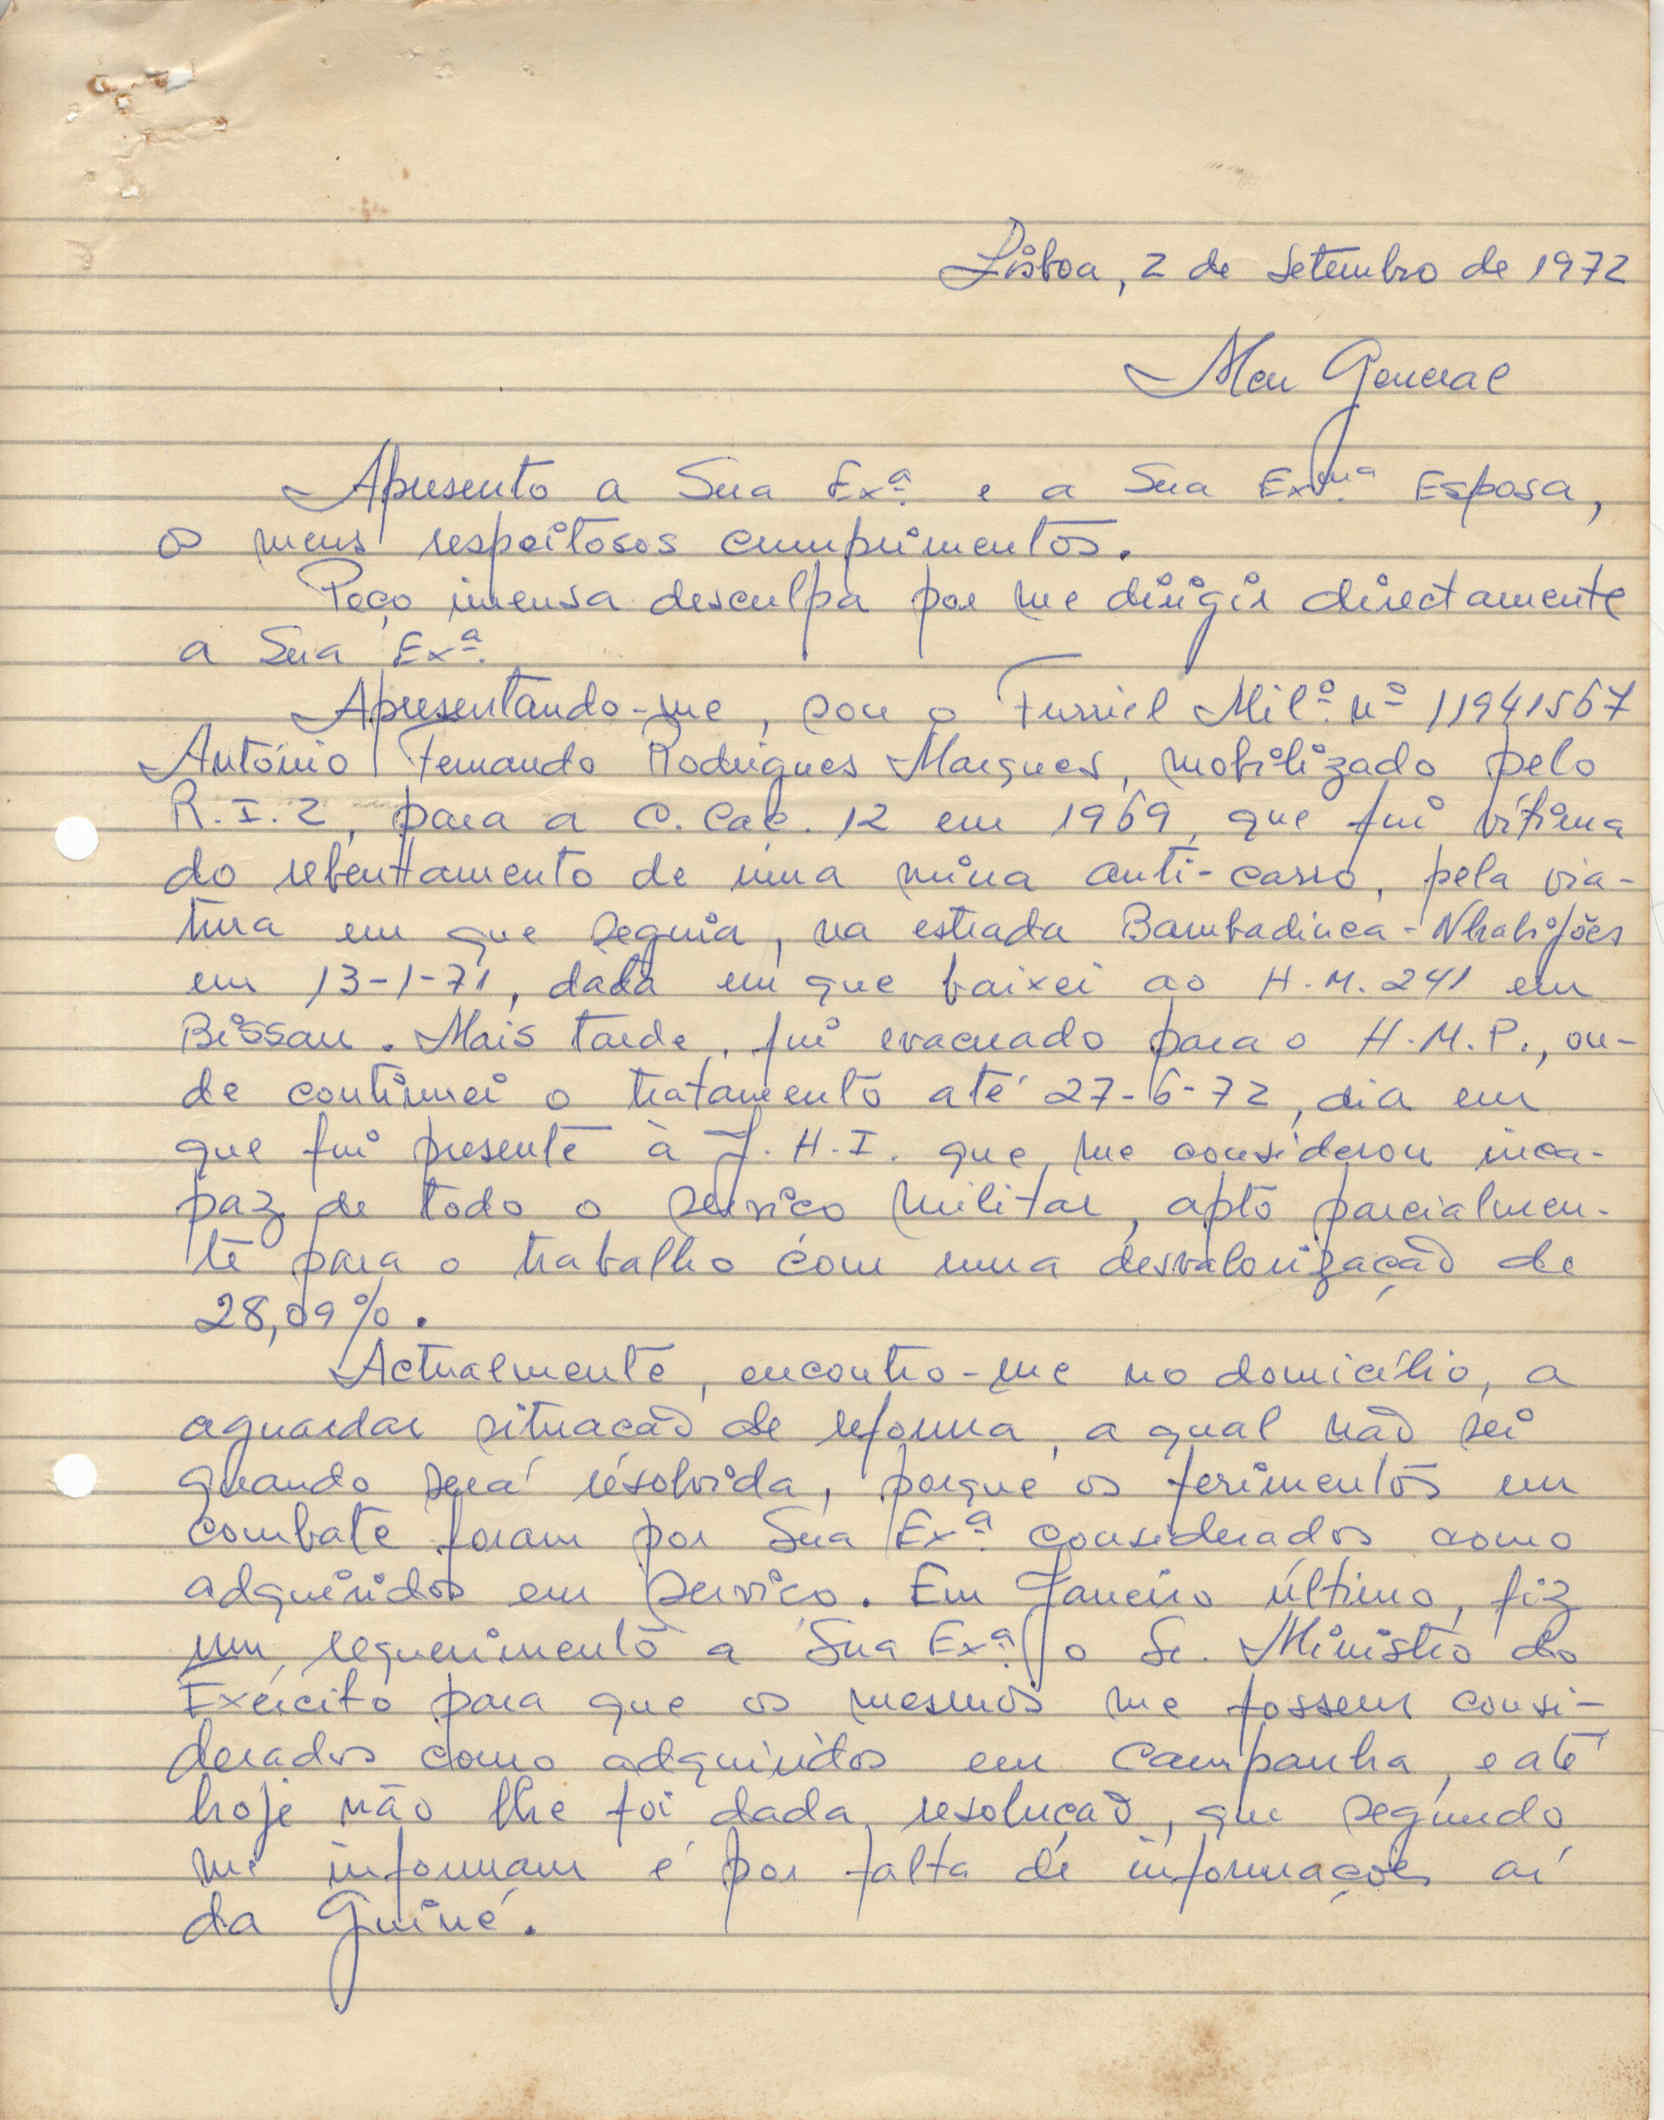 Lisboa, 2 de Setembro de 1972
Meu General
Apresento a Sua Exª. e a Sua Exmª. Esposa,
os meus respeitosos cumprimentos.
Peço imensa desculpa por me dirigir directamente
a Sua Exª.
Apresentando-me, sou o Furriel Milº. nº 11941567
António Fernando Rodrigues Marques, mobilizado pelo
R.I.2, para a C. Caç. 12 em 1969, que fui vítima
do rebentamento de uma mina anti-carro, pela via-
tura em que seguia, na estrada Bambadinca-Nhabijões
em 13-1-71, data em que baixei ao H.M. 241 em
Bissau. Mais tarde, fui evacuado para o H.M.P., on-
de continuei o tratamento até 27-6-72, dia em
que fui presente à J.H.I. que me considerou inca-
paz de todo o serviço militar, apto parcialmen-
te para o trabalho com uma desvalorização de
28,09%.
Actualmente, encontro-me no domicílio, a
aguardar situação de reforma, a qual não sei
quando será resolvida, porque os ferimentos em
combate foram por Sua Exª. considerados como
adquiridos em serviço. Em Janeiro último, fiz
um requerimento a Sua Exª. o Sr. Ministro do
Exército para que os mesmos me fossem consi-
derados como adquiridos em Campanha, e até
hoje não lhe foi dada resolução, que segundo
me informam é por falta de informações aí
da Guiné.